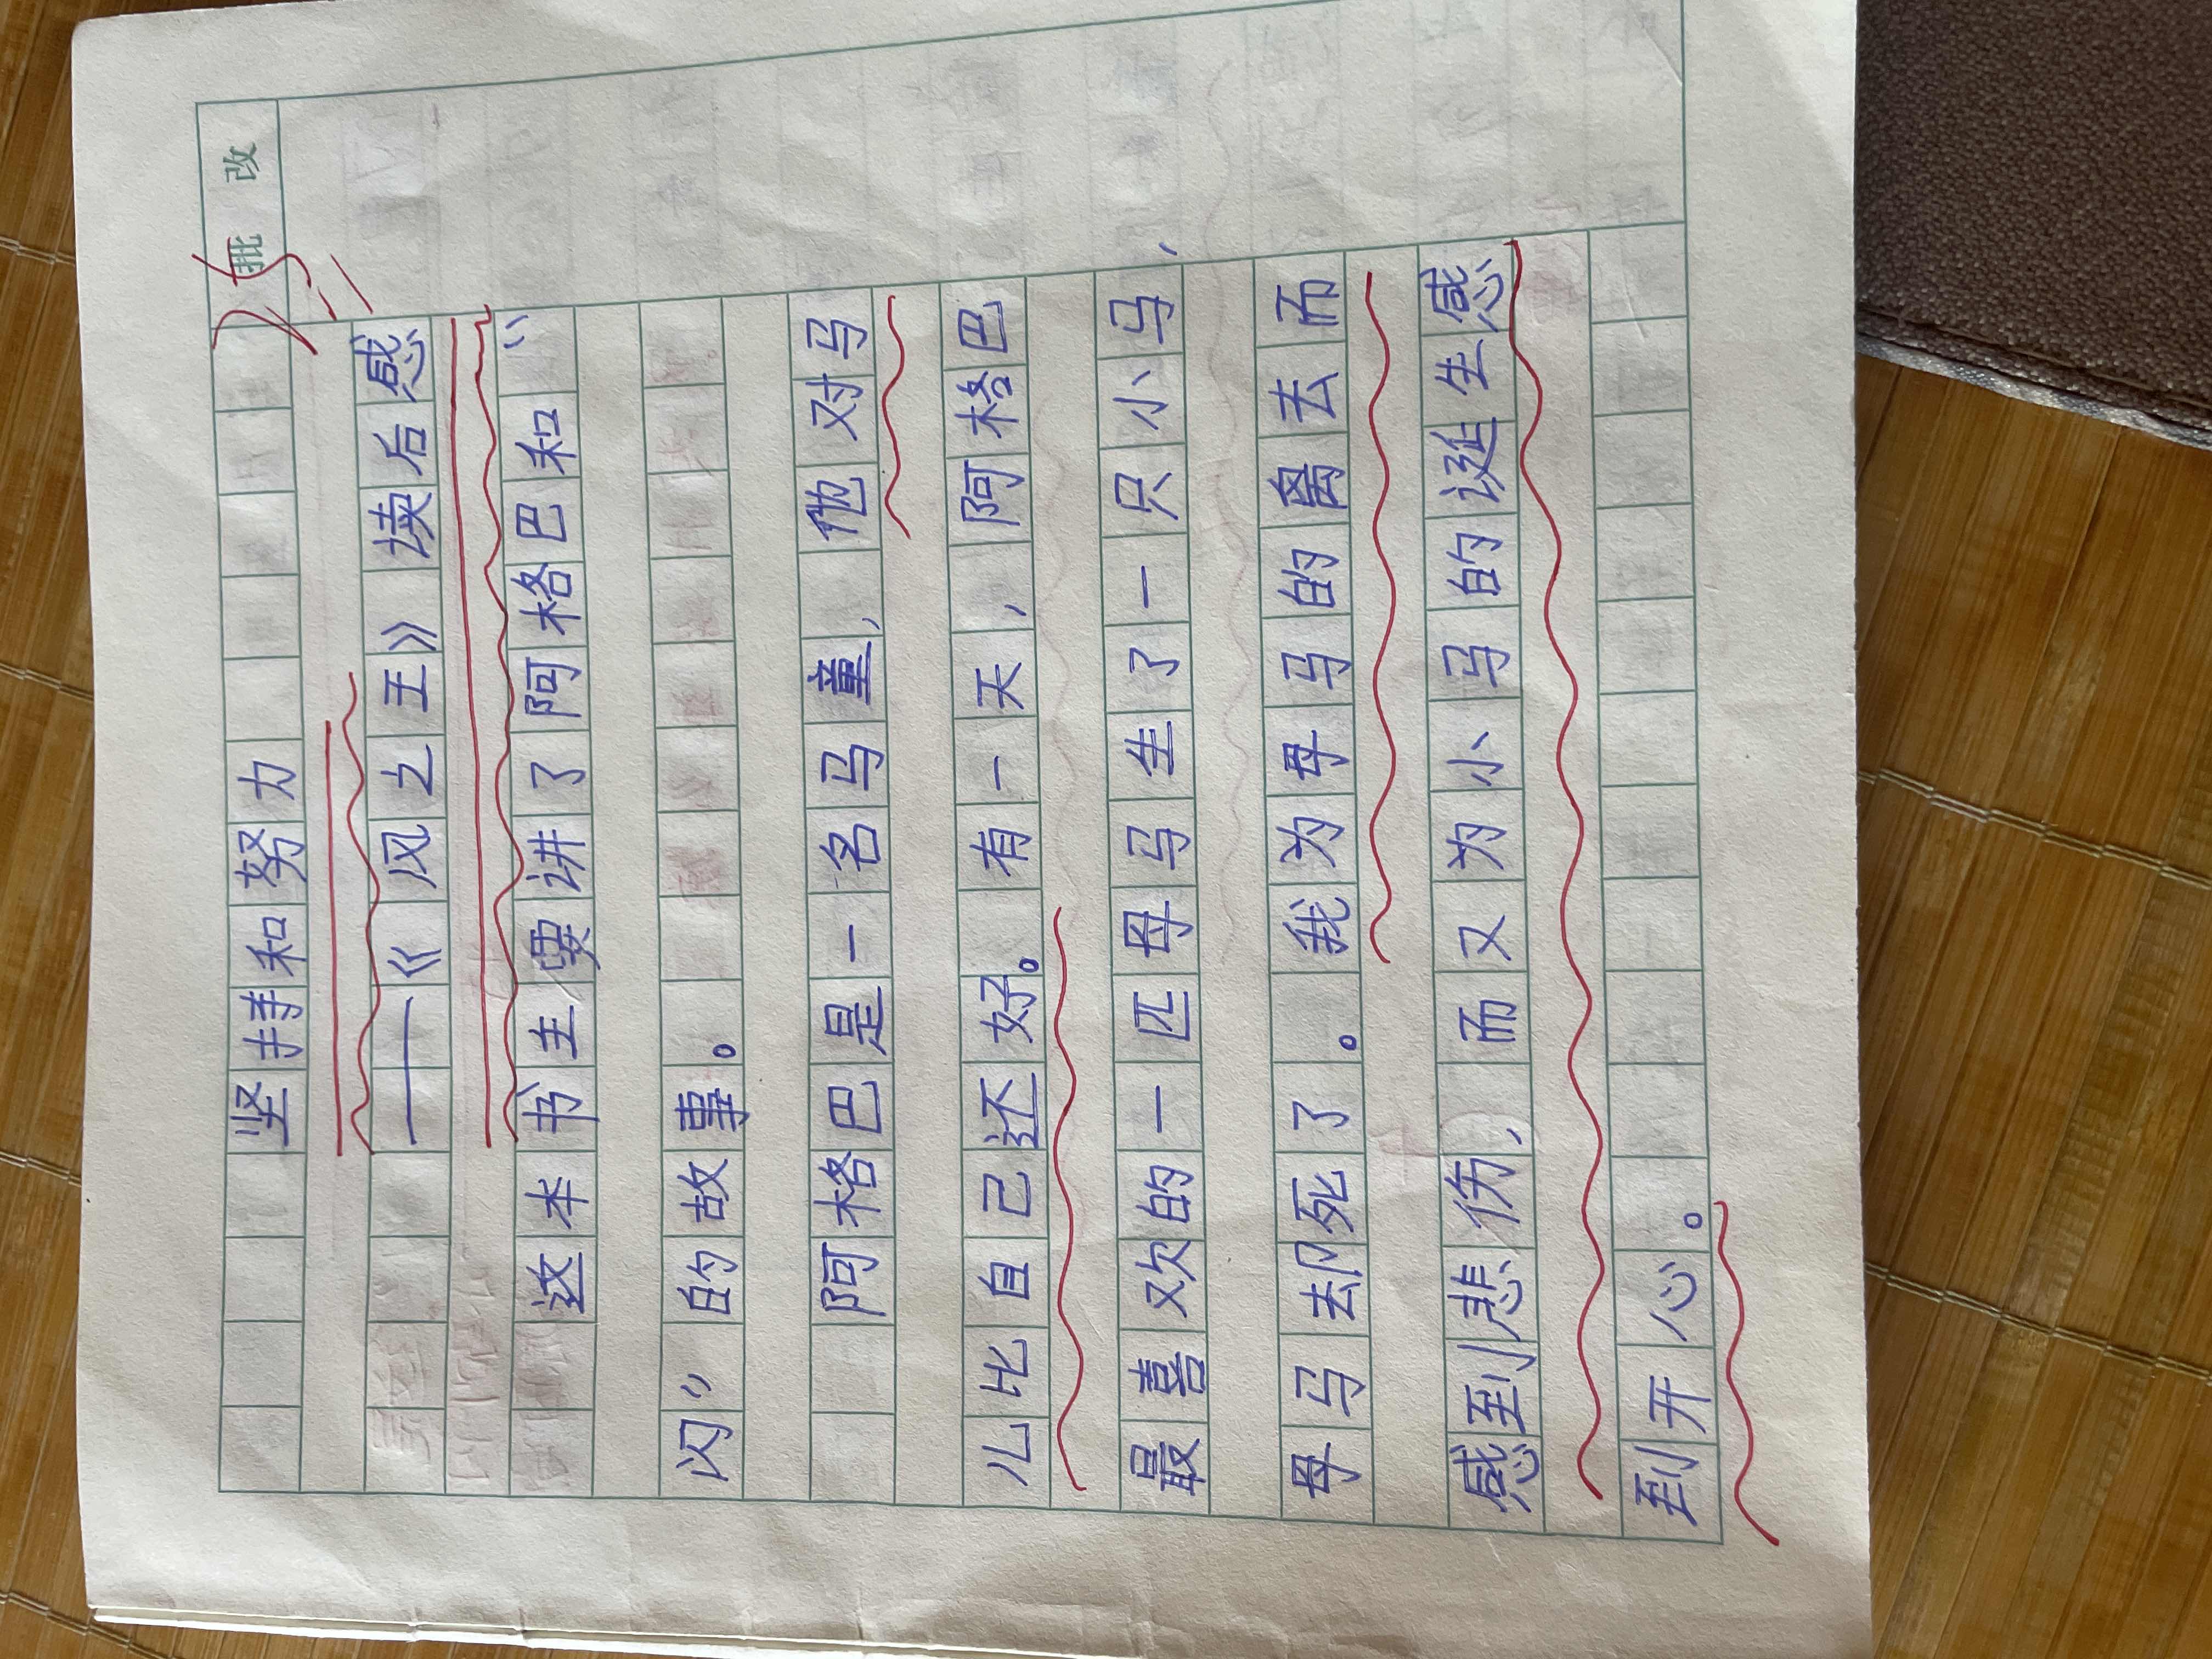 批 改
坚持和努力
——《风之王》读后感
这本书主要讲了阿格巴和“
闪”的故事。
阿格巴是一名马童，他对马
儿比自己还好。有一天，阿格巴
最喜欢的一匹母马生了一只小马，
母马却死了。我为母马的离去而
感到悲伤，而又为小马的诞生感
到开心。